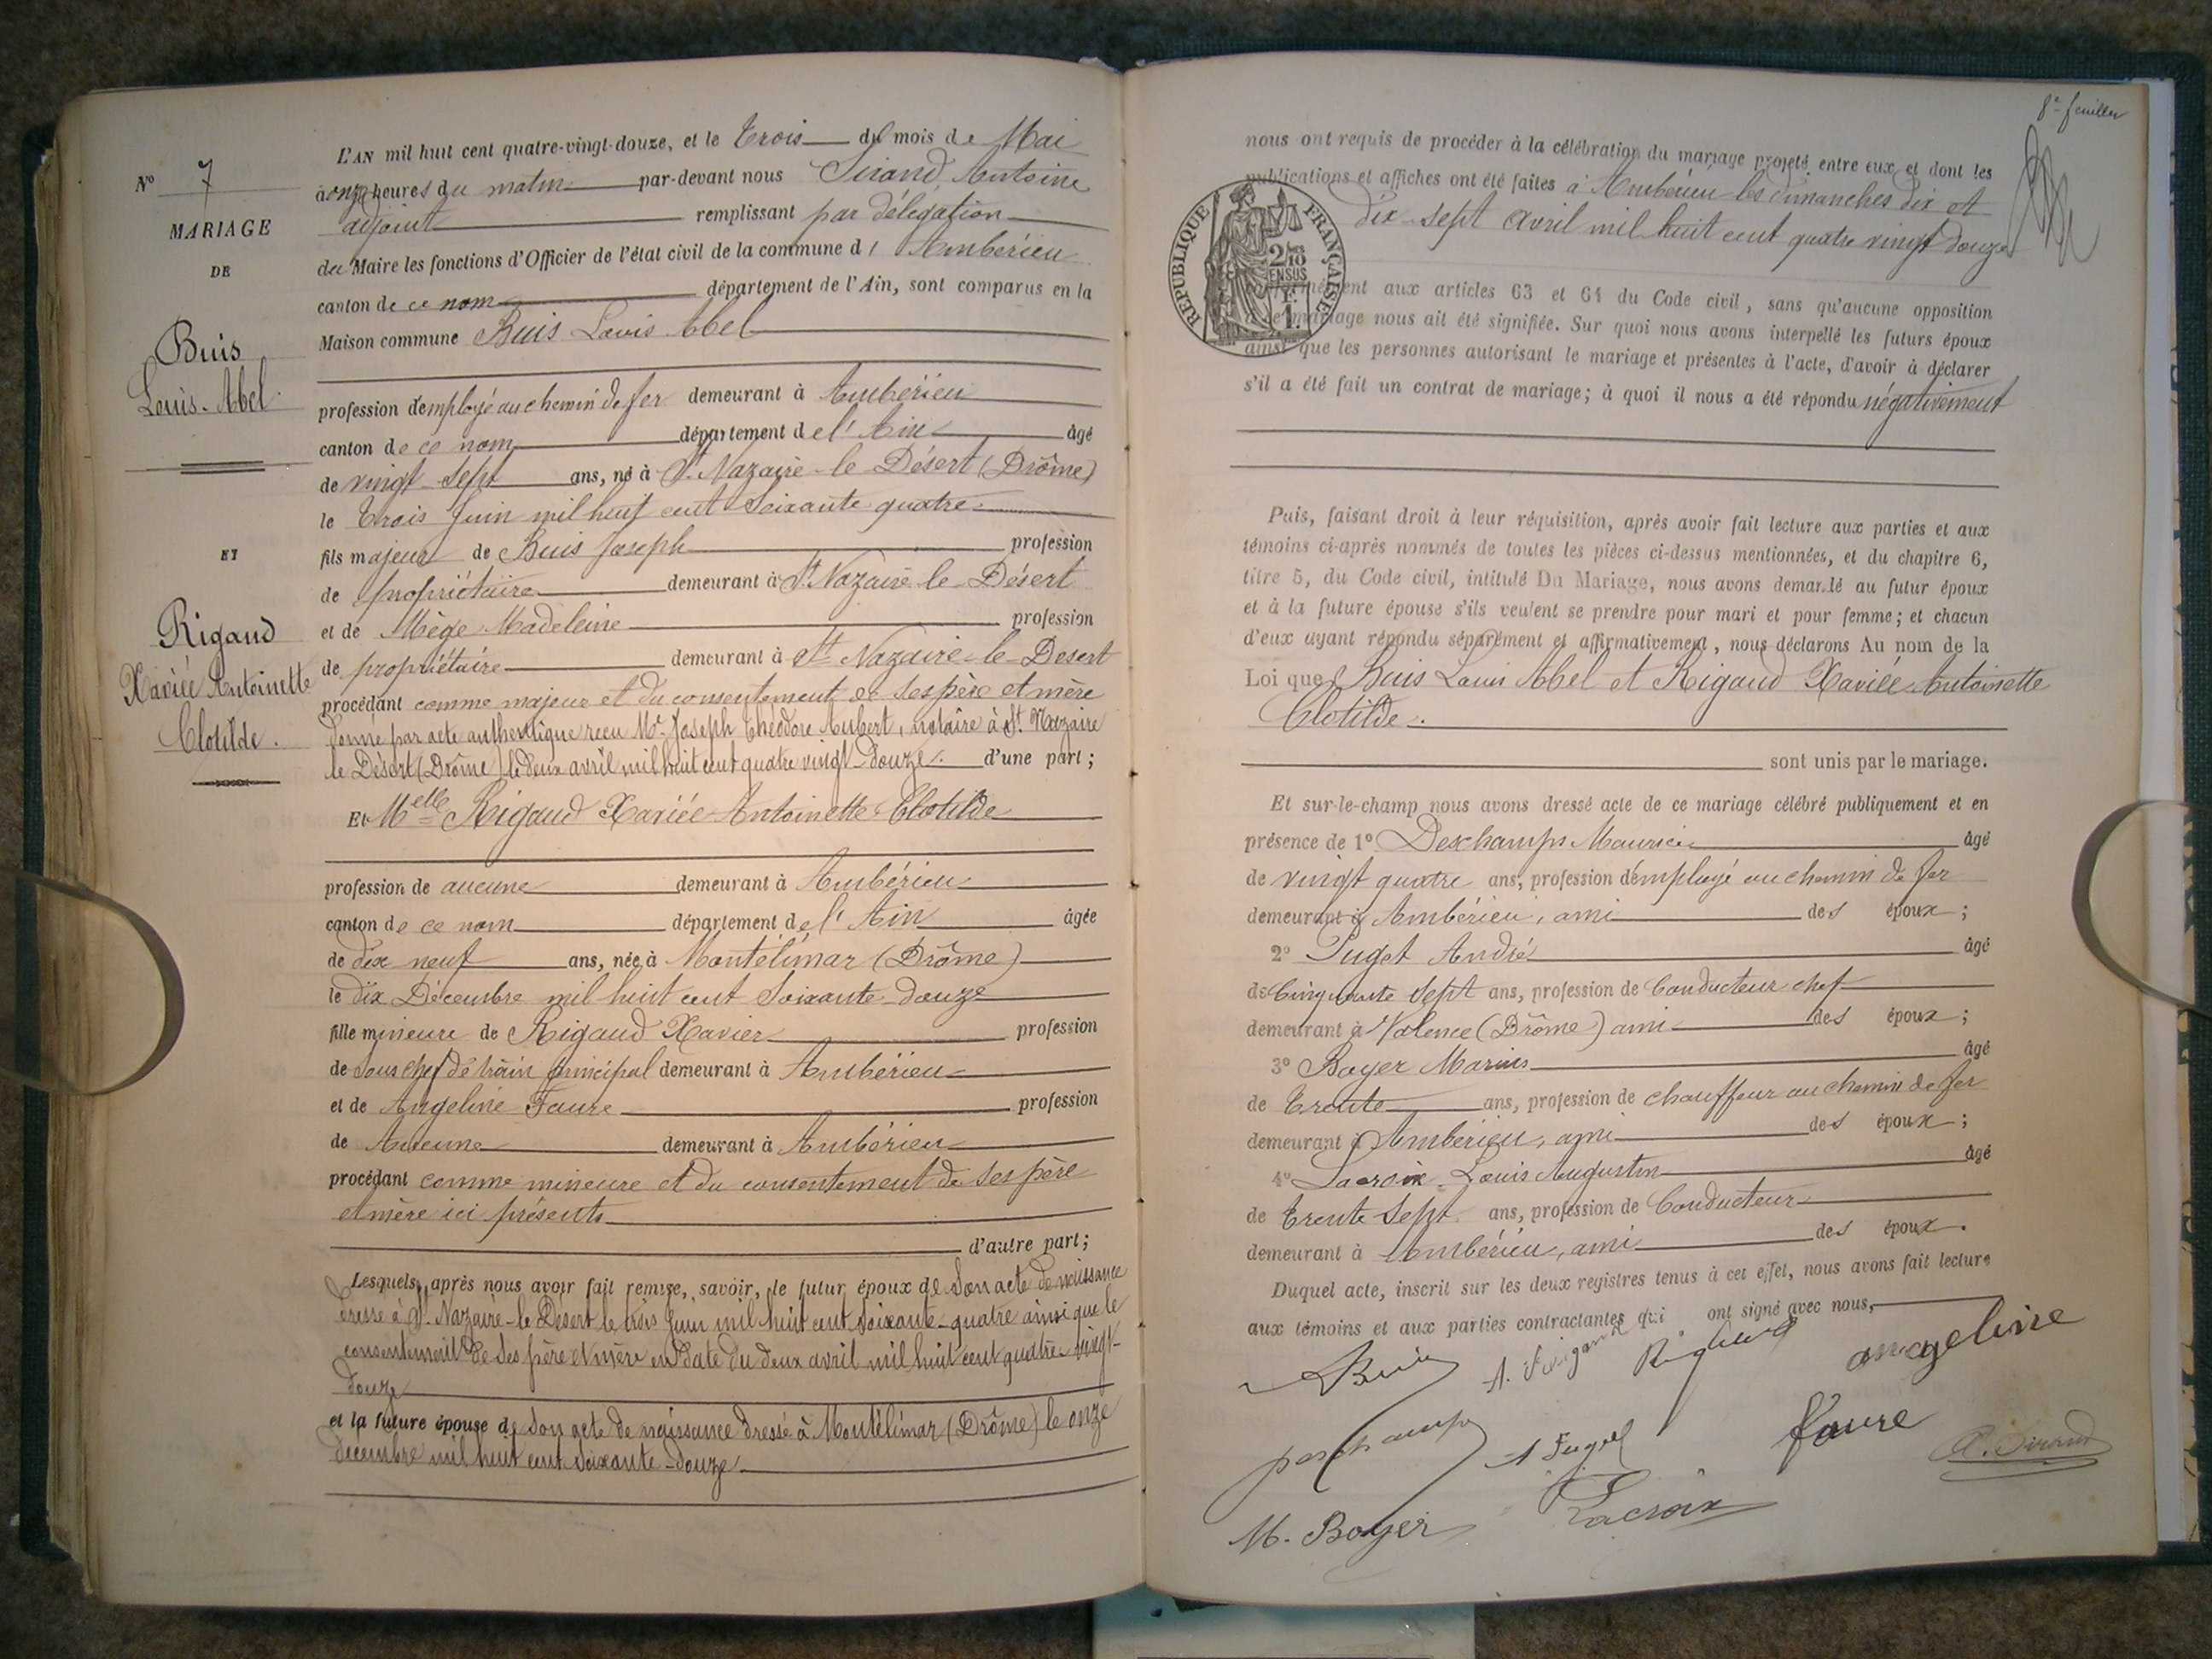 N° 7
MARIAGE
DE
Buis
Louis-Abel
ET
Rigaud
Xaviée Antoinette
Clotilde.
L'AN mil huit cent quatre-vingt-douze, et le Trois du mois de Mai
à onze heures du matin par-devant nous Sirand, Antoine
adjoint remplissant par délégation
du Maire les fonctions d'Officier de l'état civil de la commune d' Ambérieu
canton de ce nom département de l'Ain, sont comparus en la
Maison commune Buis Louis Abel
profession d'employé au chemin de fer demeurant à Ambérieu
canton de ce nom département de l'Ain âgé
de vingt-sept ans, né à St. Nazaire-le-Désert (Drôme)
le Trois Juin mil huit cent soixante-quatre
fils majeur de Buis Joseph profession
de propriétaire demeurant à St. Nazaire-le-Désert
et de Mège Madeleine profession
de propriétaire demeurant à St. Nazaire-le-Desert
procédant comme majeur et du consentement de ses père et mère
donné par acte authentique reçu Me. Joseph Théodore Aubert, notaire à St. Nazaire
le Désert (Drôme) le deux avril mil huit cent quatre vingt-douze. d'une part;
Et Melle Rigaud Xaviée-Antoinette-Clotilde
profession de aucune demeurant à Ambérieu
canton de ce nom département de l'Ain âgée
de dix neuf ans, née à Montélimar (Drôme)
le dix Décembre mil huit cent soixante-douze
fille mineure de Rigaud Xavier profession
de sous chef de train principal demeurant à Ambérieu
et de Angeline Faure profession
de Aucune demeurant à Ambérieu
procédant comme mineure et du consentement de ses père
et mère ici présents
d'autre part;
Lesquels, après nous avoir fait remise, savoir, le futur époux de son acte de naissance
dressé à St. Nazaire-le-Désert le trois Juin mil huit cent soixante-quatre ainsi que le
consentement de ses père et mère en date du deux avril mil huit cent quatre-vingt-
douze
et la future épouse de son acte de naissance dressé à Montélimar (Drôme) le onze
decembre mil huit cent soixante-douze.
8e feuillet
nous ont requis de procéder à la célébration du mariage projeté entre eux et dont les
publications et affiches ont été faites à Ambérieu les dimanches dix et
dix-sept avril mil huit cent quatre vingt douze
RÉPUBLIQUE FRANÇAISE
2/10 EN SUS
1 F.
conformément aux articles 63 et 64 du Code civil, sans qu'aucune opposition
à ce mariage nous ait été signifiée. Sur quoi nous avons interpellé les futurs époux
ainsi que les personnes autorisant le mariage et présentes à l'acte, d'avoir à déclarer
s'il a été fait un contrat de mariage; à quoi il nous a été répondu négativement
Puis, faisant droit à leur réquisition, après avoir fait lecture aux parties et aux
témoins ci-après nommés de toutes les pièces ci-dessus mentionnées, et du chapitre 6,
titre 5, du Code civil, intitulé Du Mariage, nous avons demandé au futur époux
et à la future épouse s'ils veulent se prendre pour mari et pour femme; et chacun
d'eux ayant répondu séparément et affirmativement, nous déclarons Au nom de la
Loi que Buis Louis Abel et Rigaud Xaviée Antoinette
Clotilde.
sont unis par le mariage.
Et sur-le-champ nous avons dressé acte de ce mariage célébré publiquement et en
présence de 1° Deschamps Maurice âgé
de vingt quatre ans, profession d'employé au chemin de fer
demeurant à Ambérieu, ami des époux;
2° Puget André âgé
de Cinquante sept ans, profession de Conducteur chef
demeurant à Valence (Drôme) ami des époux;
3° Boyer Marius âgé
de Trente ans, profession de chauffeur au chemin de fer
demeurant à Ambérieu, ami des époux;
4° Lacroix Louis Augustin âgé
de Trente-Sept ans, profession de Conducteur
demeurant à Ambérieu, ami des époux.
Duquel acte, inscrit sur les deux registres tenus à cet effet, nous avons fait lecture
aux témoins et aux parties contractantes qui ont signé avec nous,
Buis Rigaud angeline
Deschamps A Puget faure A. Sirand
M. Boyer Lacroix